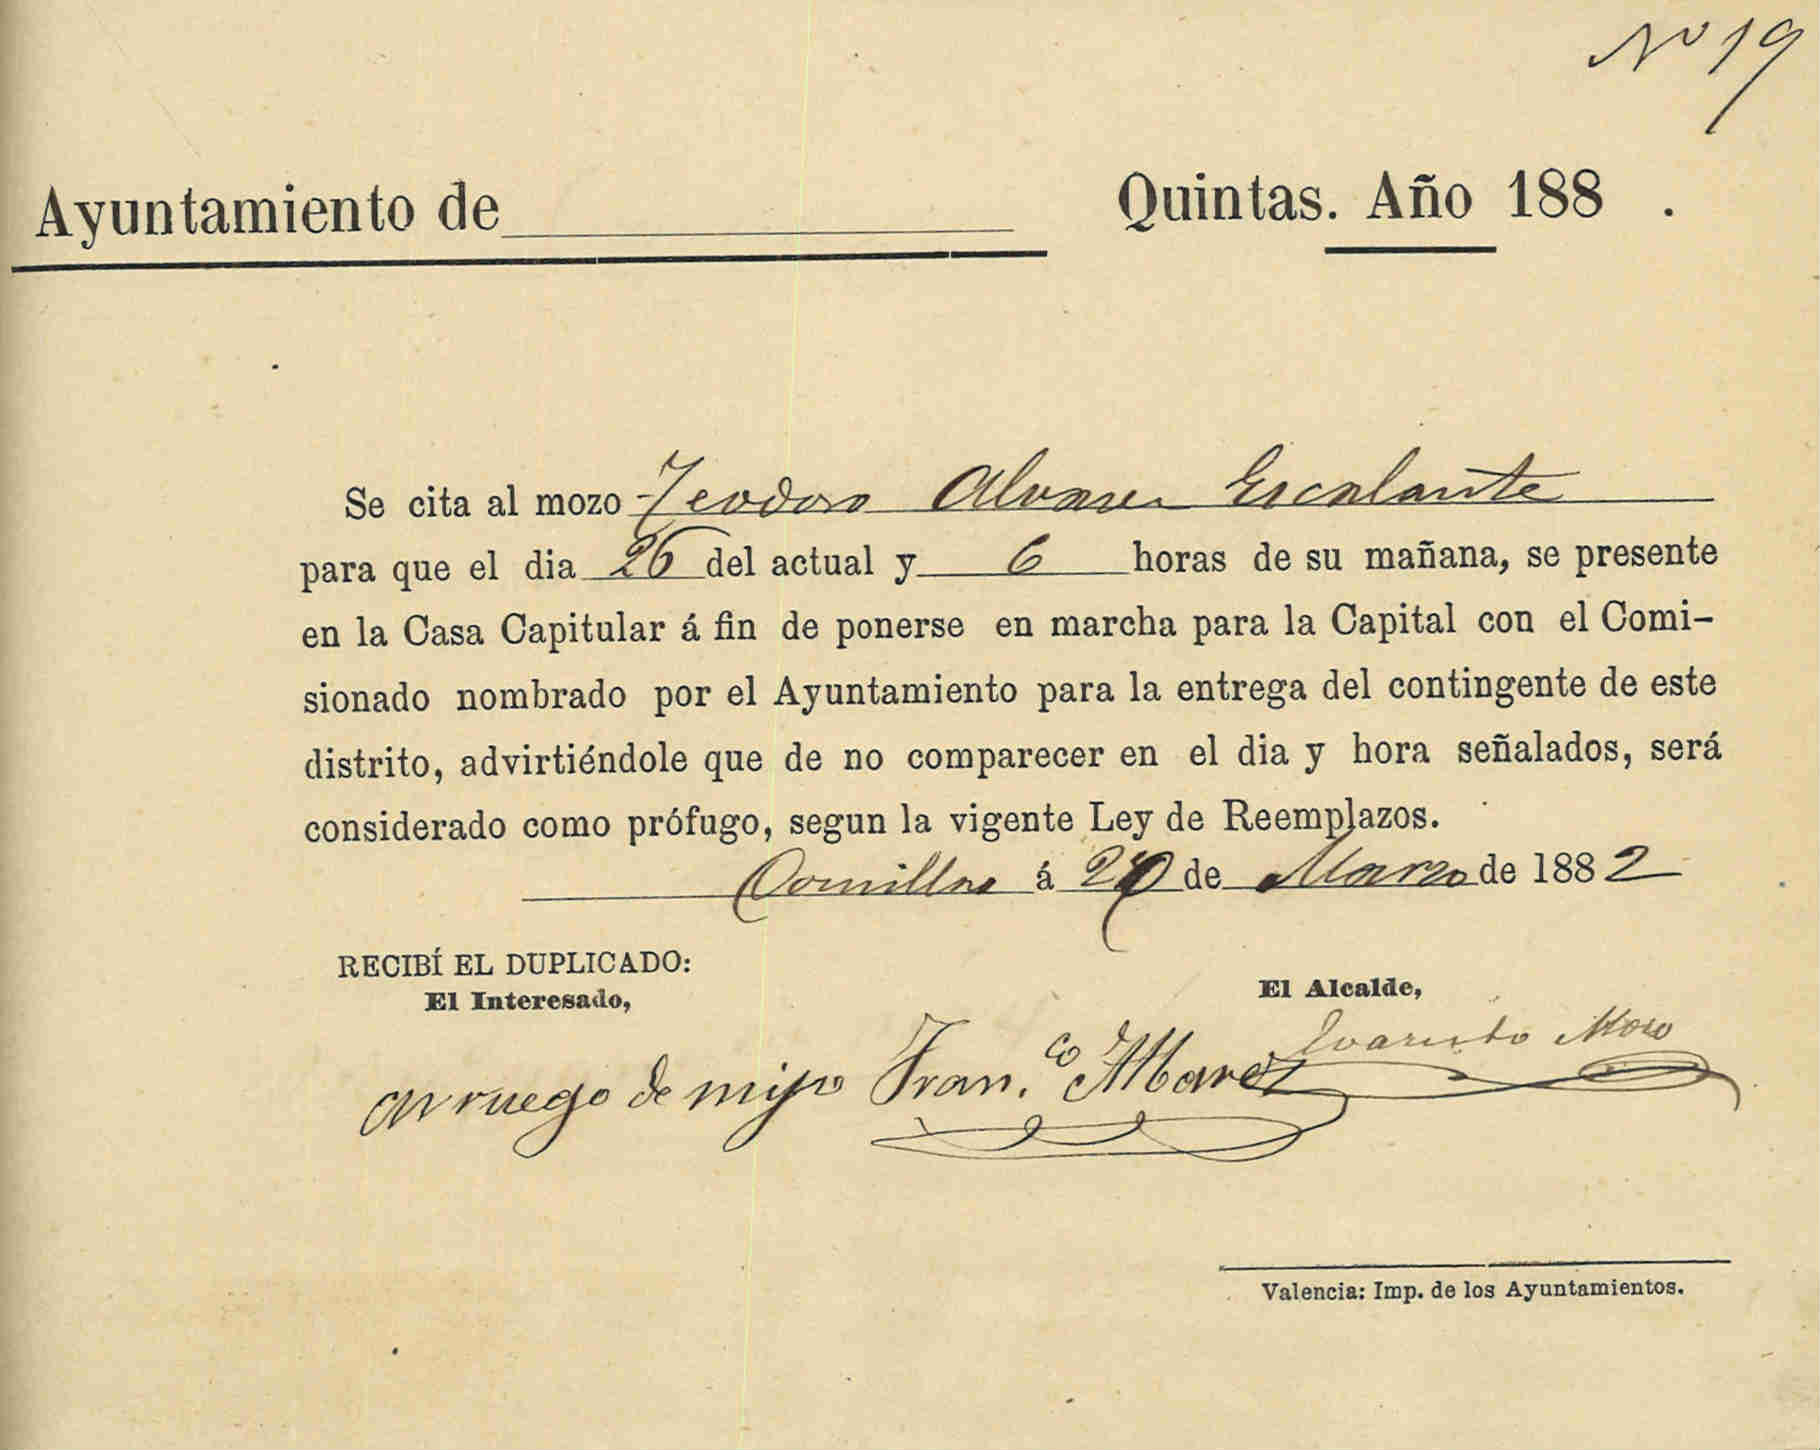 Nº 19
Ayuntamiento de Quintas. Año 188 .
Se cita al mozo Teodoro Alvarez Escalante
para que el dia 26 del actual y 6 horas de su mañana, se presente
en la Casa Capitular á fin de ponerse en marcha para la Capital con el Comi-
sionado nombrado por el Ayuntamiento para la entrega del contingente de este
distrito, advirtiéndole que de no comparecer en el dia y hora señalados, será
considerado como prófugo, segun la vigente Ley de Reemplazos.
Comillas á de Marzo de 1882
RECIBÍ EL DUPLICADO:
El Interesado,
El Alcalde,
Evaristo Moro
Arruego de mijo Fran.co Alvarez
Valencia: Imp. de los Ayuntamientos.